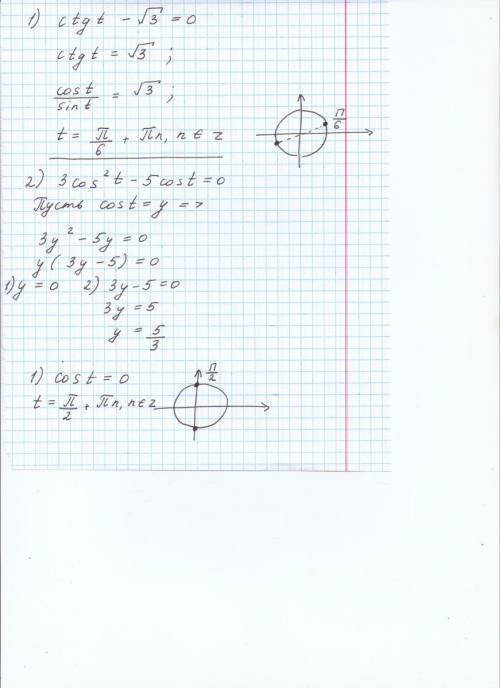 1) ctgt - √3 = 0
ctgt = √3 ;
cost/sint = √3 ;
t = π/6 + πn, n ∈ z
π/6
2) 3cos²t - 5cost = 0
Пусть cost = y =>
3y² - 5y = 0
y(3y - 5) = 0
1) y = 0 2) 3y - 5 = 0
3y = 5
y = 5/3
1) cost = 0
t = π/2 + πn, n ∈ z
π/2